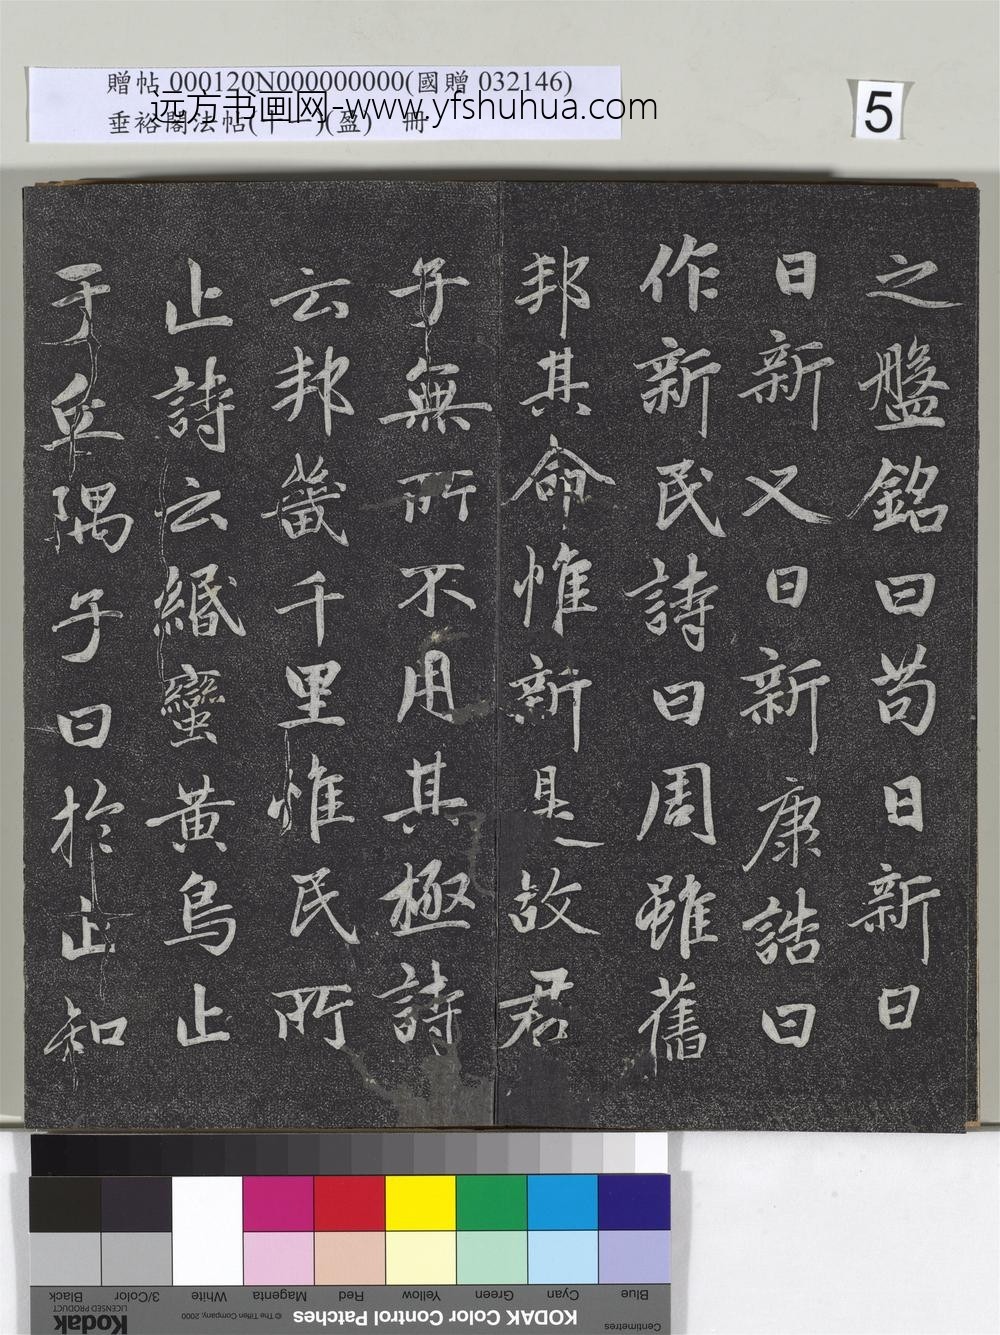 贈帖 000120N000000000(國贈 032146)
垂裕閣法帖(十一)(盈) 冊
远方书画网-www.yfshuhua.com
5
之盤銘曰苟日新日
日新又日新康誥曰
作新民詩曰周雖舊
邦其命惟新是故君
子無所不用其極詩
云邦畿千里惟民所
止詩云緡蠻黃鳥止
于丘隅子曰於止知
Black
3/Color
White
Magenta
Red
Yellow
Green
Cyan
Blue
Kodak
LICENSED PRODUCT
© The Tiffen Company, 2000
KODAK Color Control Patches
Centimetres